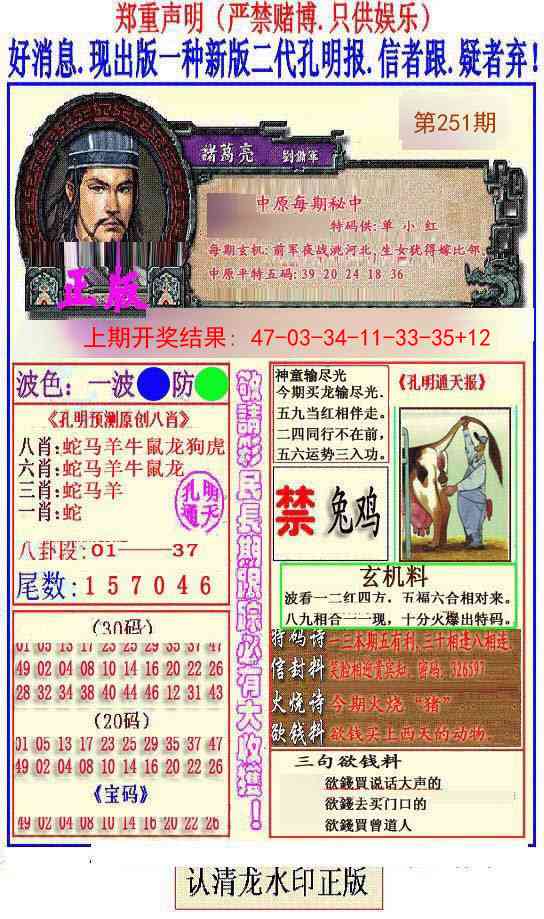 郑重声明（严禁赌博.只供娱乐）
好消息.现出版一种新版二代孔明报.信者跟.疑者弃!
第251期
諸葛亮 劉備軍
中原每期秘中
特码供:单 小 红
每期玄机:前军夜战洮河北,生女犹得嫁比邻
中原平特五码:39 20 24 18 36
正版
上期开奖结果: 47-03-34-11-33-35+12
波色: 一波 防
《孔明预测原创八肖》
八肖:蛇马羊牛鼠龙狗虎
六肖:蛇马羊牛鼠龙
三肖:蛇马羊
一肖:蛇
孔明通天
八卦段:01——37
尾数:157046
(30码)
01 05 13 17 23 25 29 35 37 47
49 02 04 08 10 14 16 20 22 26
28 32 34 38 40 44 46 12 31 43
(20码)
01 05 13 17 23 25 29 35 37 47
49 02 04 08 10 14 16 20 22 26
《宝码》
49 02 04 08 10 14 16 20 22 26
敬請彩民長期跟踪必有大收獲!
神童输尽光
今期买龙输尽光.
五九当红相伴走。
二四同行不在前,
五六运势三入功。
《孔明通天报》
禁 兔鸡
玄机料
波看一二红四方，五福六合相对来。
八九相合一一现，十分火爆出特码。
特码诗 一二本期五有利,三十相连八相连
信封料 笑脸相迎贵宾如. 密码:
火烧诗 今期火烧“猪”
欲钱料 欲钱买上西天的动物。
三句欲钱料
欲錢買说话大声的
欲錢去买门口的
欲錢買曾道人
认清龙水印正版